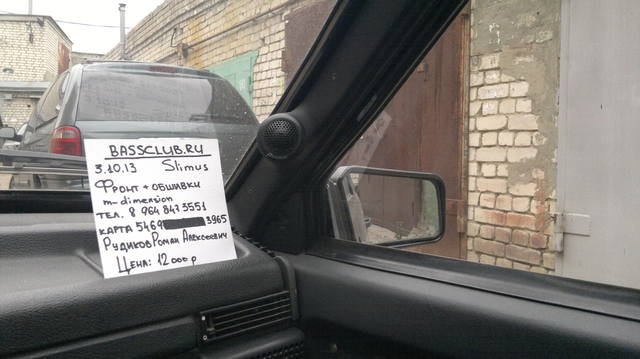 BASSCLUB.RU
3.10.13 Slimus
Фронт + обшивки
m-dimension
тел. 8 964 847 3551
карта 5469 3965
Рудиков Роман Алексеевич
Цена: 12 000 р